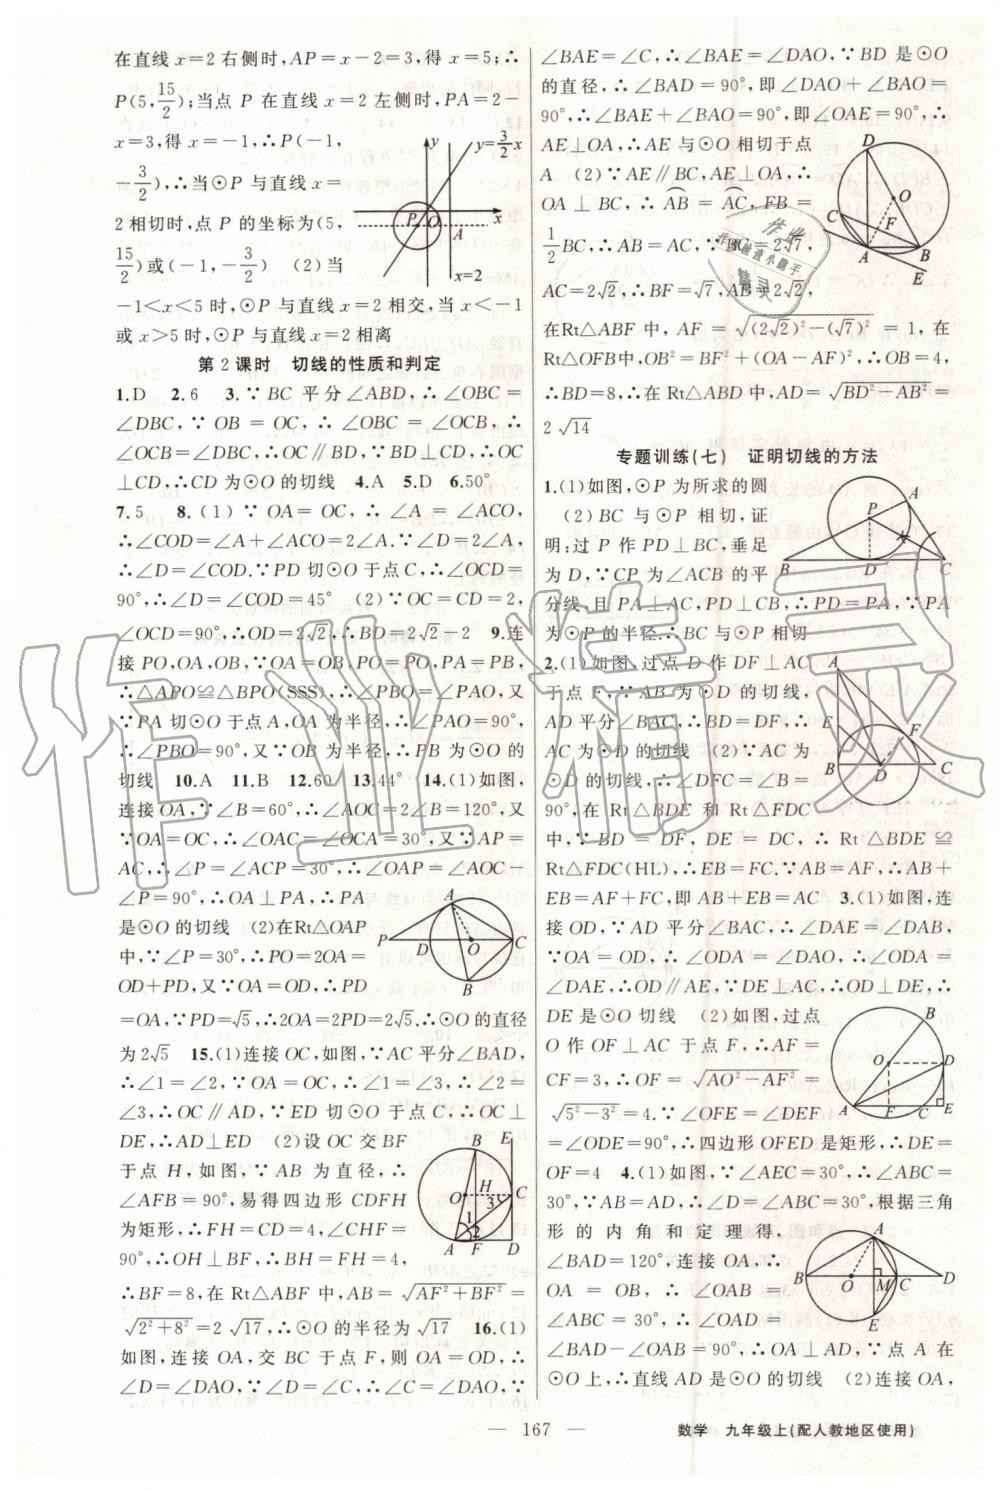 在直线x=2右侧时,AP=x-2=3,得x=5;∴
P(5,15/2);当点P在直线x=2左侧时,PA=2-
x=3,得x=-1,∴P(-1,
-3/2),∴当⊙P与直线x=
2相切时,点P的坐标为(5,
15/2)或(-1,-3/2) (2)当
-1<x<5时,⊙P与直线x=2相交,当x<-1
或x>5时,⊙P与直线x=2相离
第2课时 切线的性质和判定
1.D 2.6 3.∵BC平分∠ABD,∴∠OBC=
∠DBC,∵OB=OC,∴∠OBC=∠OCB,∴
∠OCB=∠DBC,∴OC∥BD,∵BD⊥CD,∴OC
⊥CD,∴CD为⊙O的切线 4.A 5.D 6.50°
7.5 8.(1)∵OA=OC,∴∠A=∠ACO,
∴∠COD=∠A+∠ACO=2∠A.∵∠D=2∠A,
∴∠D=∠COD.∵PD切⊙O于点C,∴∠OCD=
90°,∴∠D=∠COD=45° (2)∵OC=CD=2,
∠OCD=90°,∴OD=2√2,∴BD=2√2-2 9.连
接PO,OA,OB,∵OA=OB,PO=PO,PA=PB,
∴△APO≌△BPO(SSS),∴∠PBO=∠PAO,又
∵PA切⊙O于点A,OA为半径,∴∠PAO=90°,
∴∠PBO=90°,又∵OB为半径,∴PB为⊙O的
切线 10.A 11.B 12.60 13.44° 14.(1)如图,
连接OA,∵∠B=60°,∴∠AOC=2∠B=120°,又
∵OA=OC,∴∠OAC=∠OCA=30°,又∵AP=
AC,∴∠P=∠ACP=30°,∴∠OAP=∠AOC-
∠P=90°,∴OA⊥PA,∴PA
是⊙O的切线 (2)在Rt△OAP
中,∵∠P=30°,∴PO=2OA=
OD+PD,又∵OA=OD,∴PD
=OA,∵PD=√5,∴2OA=2PD=2√5.∴⊙O的直径
为2√5 15.(1)连接OC,如图,∵AC平分∠BAD,
∴∠1=∠2,∵OA=OC,∴∠1=∠3,∴∠2=
∠3,∴OC∥AD,∵ED切⊙O于点C,∴OC⊥
DE,∴AD⊥ED (2)设OC交BF
于点H,如图,∵AB为直径,∴
∠AFB=90°,易得四边形CDFH
为矩形,∴FH=CD=4,∠CHF=
90°,∴OH⊥BF,∴BH=FH=4,
∴BF=8,在Rt△ABF中,AB=√(AF²+BF²)=
√(2²+8²)=2√17,∴⊙O的半径为√17 16.(1)
如图,连接OA,交BC于点F,则OA=OD,∴
∠D=∠DAO,∵∠D=∠C,∴∠C=∠DAO,∵
∠BAE=∠C,∴∠BAE=∠DAO,∵BD是⊙O
的直径,∴∠BAD=90°,即∠DAO+∠BAO=
90°,∴∠BAE+∠BAO=90°,即∠OAE=90°,∴
AE⊥OA,∴AE与⊙O相切于点
A (2)∵AE∥BC,AE⊥OA,∴
OA⊥BC,∴AB=AC,FB=
1/2BC,∴AB=AC,∵BC=2√7,
AC=2√2,∴BF=√7,AB=2√2,
在Rt△ABF中,AF=√((2√2)²-(√7)²)=1,在
Rt△OFB中,OB²=BF²+(OA-AF)²,∴OB=4,
∴BD=8,∴在Rt△ABD中,AD=√(BD²-AB²)=
2√14
专题训练(七) 证明切线的方法
1.(1)如图,⊙P为所求的圆
(2)BC与⊙P相切,证
明:过P作PD⊥BC,垂足
为D,∵CP为∠ACB的平
分线,且PA⊥AC,PD⊥CB,∴PD=PA,∵PA
为⊙P的半径,∴BC与⊙P相切
2.(1)如图,过点D作DF⊥AC
于点F,∵AB为⊙D的切线,
AD平分∠BAC,∴BD=DF,∴
AC为⊙D的切线 (2)∵AC为
⊙D的切线,∴∠DFC=∠B=
90°,在Rt△BDE和Rt△FDC
中,∵BD=DF,DE=DC,∴Rt△BDE≌
Rt△FDC(HL),∴EB=FC.∵AB=AF,∴AB+
EB=AF+FC,即AB+EB=AC 3.(1)如图,连
接OD,∵AD平分∠BAC,∴∠DAE=∠DAB,
∵OA=OD,∴∠ODA=∠DAO,∴∠ODA=
∠DAE,∴OD∥AE,∵DE⊥AC,∴OD⊥DE,∴
DE是⊙O切线 (2)如图,过点
O作OF⊥AC于点F,∴AF=
CF=3,∴OF=√(AO²-AF²)=
√(5²-3²)=4.∵∠OFE=∠DEF
=∠ODE=90°,∴四边形OFED是矩形,∴DE=
OF=4 4.(1)如图,∵∠AEC=30°,∴∠ABC=
30°,∵AB=AD,∴∠D=∠ABC=30°,根据三角
形的内角和定理得,
∠BAD=120°,连接OA,∴
OA=OB,∴∠OAB=
∠ABC=30°,∴∠OAD=
∠BAD-∠OAB=90°,∴OA⊥AD,∵点A在
⊙O上,∴直线AD是⊙O的切线 (2)连接OA,
— 167 — 数学 九年级上(配人教地区使用)
作业精灵